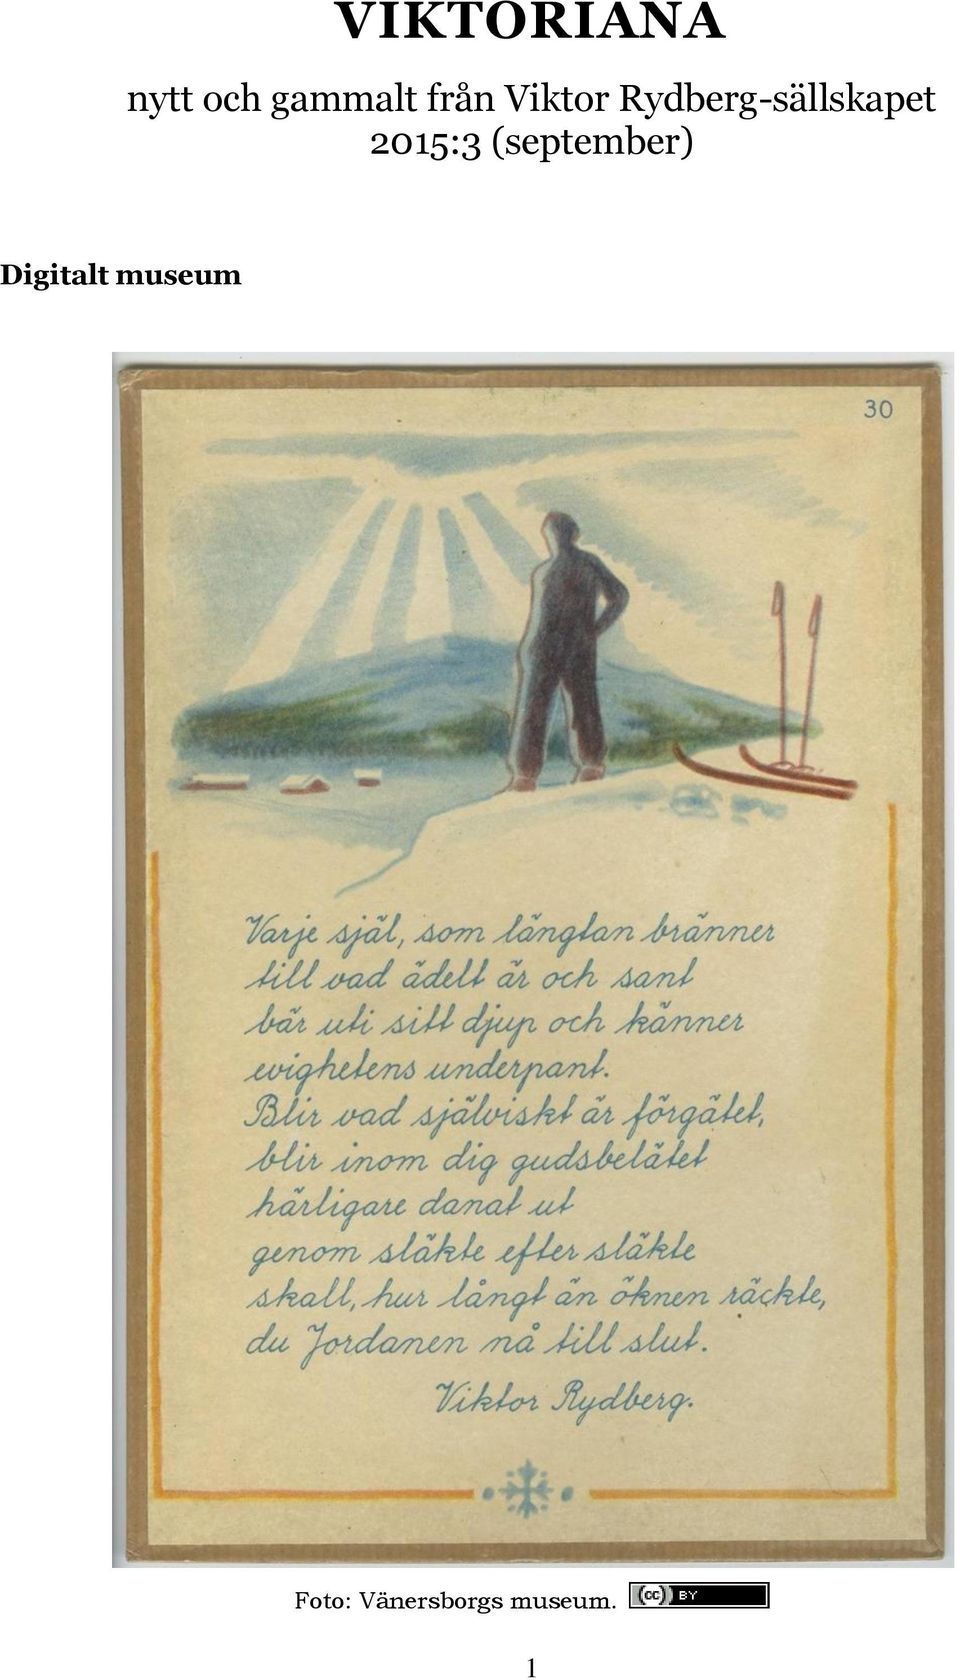 VIKTORIANA
nytt och gammalt från Viktor Rydberg-sällskapet
2015:3 (september)
Digitalt museum
30
Varje själ, som längtan bränner
till vad ädelt är och sant
bär uti sitt djup och känner
evighetens underpant.
Blir vad själviskt är förgätet,
blir inom dig gudsbelätet
härligare danat ut
genom släkte efter släkte
skall, hur långt än öknen räckte,
du Jordanen nå till slut.
Viktor Rydberg.
Foto: Vänersborgs museum. (cc) BY
1